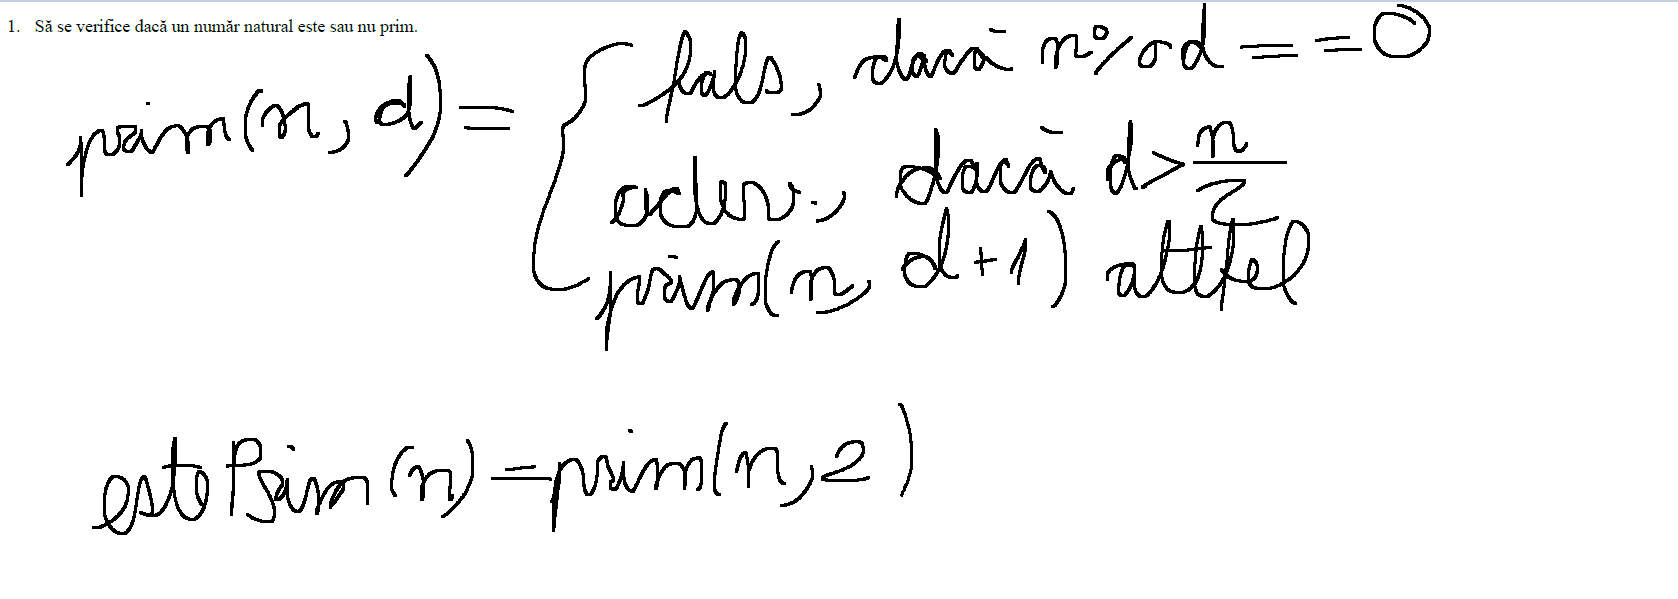 1. Să se verifice dacă un număr natural este sau nu prim.
prim(n, d) = { fals, dacă n % d == 0
adev., dacă d > n/2
prim(n, d+1) altfel
estePrim(n) = prim(n, 2)